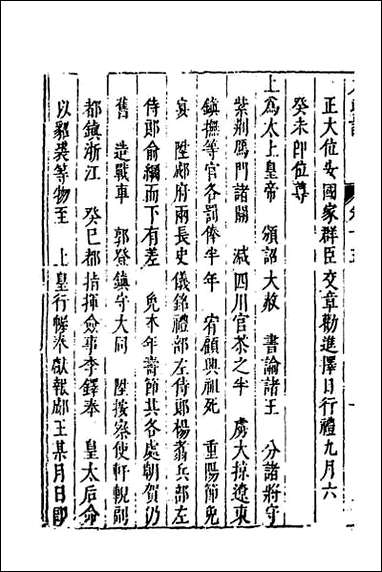 正大位安國家群臣交章勸進擇日行禮九月六
癸未即位尊
上爲太上皇帝　頒詔大赦　書諭諸王　分諸將守
紫荆鴈門諸關　減四川官茶之半　虜大掠遼東
鎮撫等官各罰俸半年　宥顧興祖死　重陽節免
宴　陞郕府兩長史儀銘禮部左侍郎楊翥兵部左
侍郎俞綱而下有差　免來年壽節其各處朝賀仍
舊　造戰車　郭登鎮守大同　陞按察使軒輗副
都鎮浙江　癸巳都指揮僉事李鐸奉　皇太后命
以貂裘等物至　上皇行帳奉獻報郕王某月日即